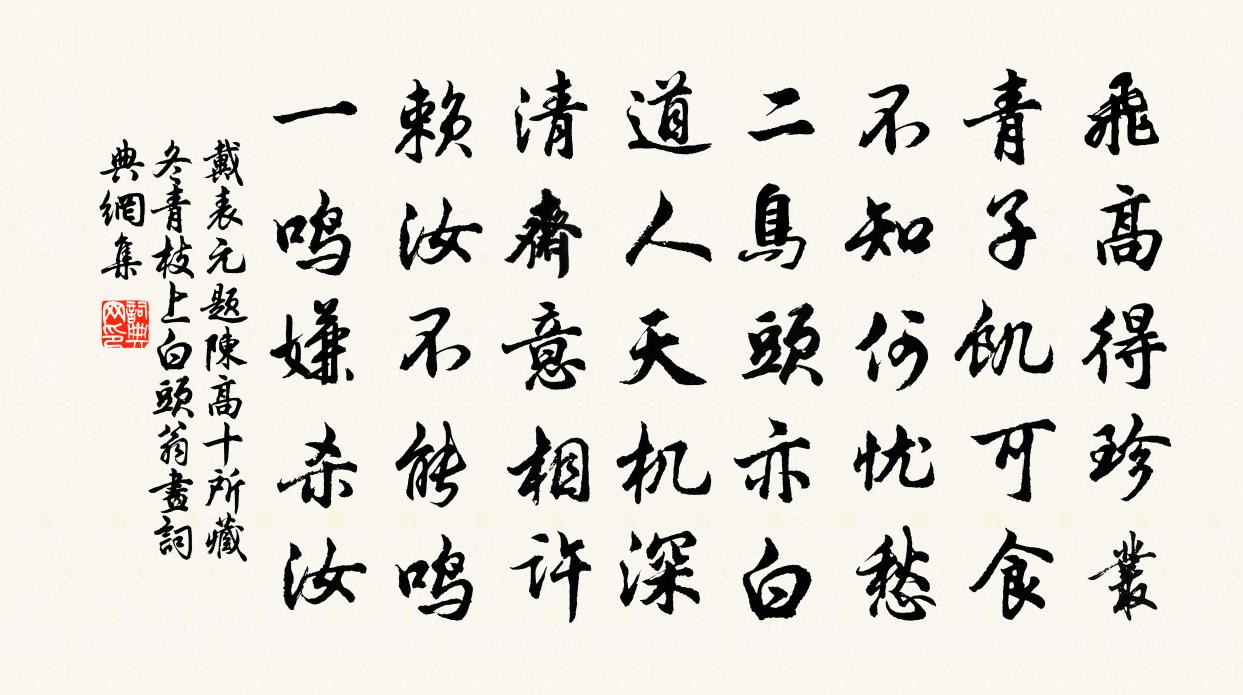 飛高得珍叢
青子飢可食
不知何忧愁
二鳥頭亦白
道人天机深
清齋意相許
赖汝不能鸣
一鸣嫌杀汝
戴表元題陳高十所藏
冬青枝上白頭翁畫詞
典網集
詞典网印